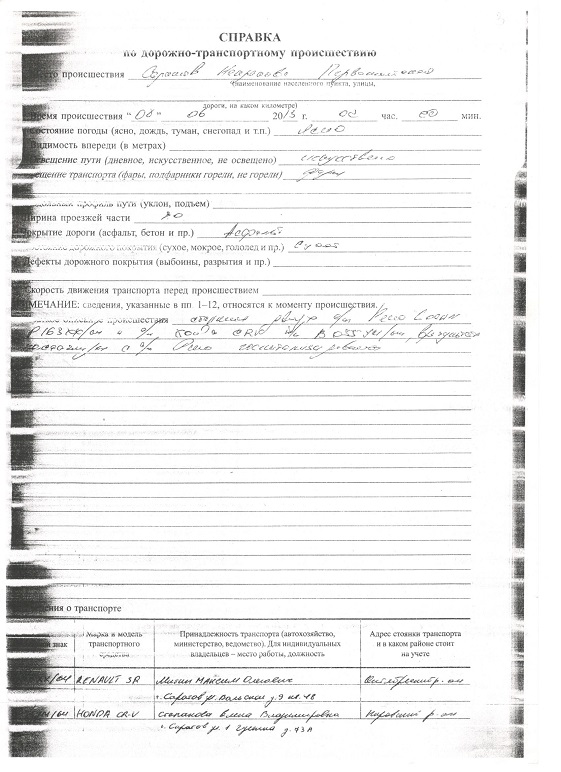 СПРАВКА
по дорожно-транспортному происшествию
происшествия Саратов Некрасова Первомайская
(наименование населенного пункта, улицы,
дороги, на каком километре)
Время происшествия “ 08 ” 06 2015 г. 02 час. 00 мин.
Состояние погоды (ясно, дождь, туман, снегопад и т.п.) Ясно
Видимость впереди (в метрах)
освещение пути (дневное, искусственное, не освещено) искуствено
транспорта (фары, подфарники горели, не горели) фары
профиль пути (уклон, подъем)
Ширина проезжей части 20
покрытие дороги (асфальт, бетон и пр.) Асфальт
дорожного покрытия (сухое, мокрое, гололед и пр.) Сухое
Дефекты дорожного покрытия (выбоины, разрытия и пр.)
Скорость движения транспорта перед происшествием
ПРИМЕЧАНИЕ: сведения, указанные в пп. 1–12, относятся к моменту происшествия.
описание происшествия а/м Рено Логан
а/м CRV
с а/м Рено
о транспорте
знак
Марка и модель транспортного средства
Принадлежность транспорта (автохозяйство, министерство, ведомство). Для индивидуальных владельцев – место работы, должность
Адрес стоянки транспорта и в каком районе стоит на учете
/64 RENAULT SR Максим Олегович р-он
г. Саратов ул. Вольская д. 9 кв. 18
/64 HONDA CR-V Степанова Елена Владимировна Кировский р-он
г. Саратов ул. д. 73А